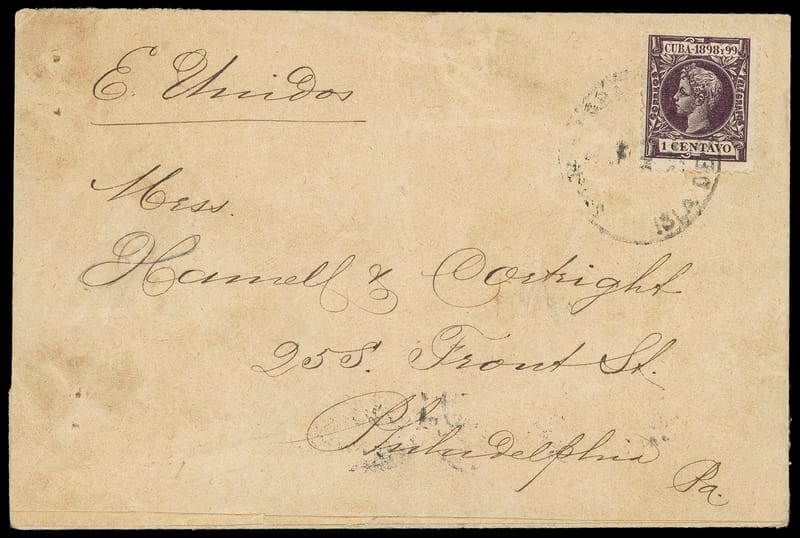 E. Unidos
CUBA-1898 Y 99
CORREOS
TELEGRAFOS
1 CENTAVO
ISLA DE
Mess.
Hamell & Cortright
25 S. Front St.
Philadelphia
Pa.